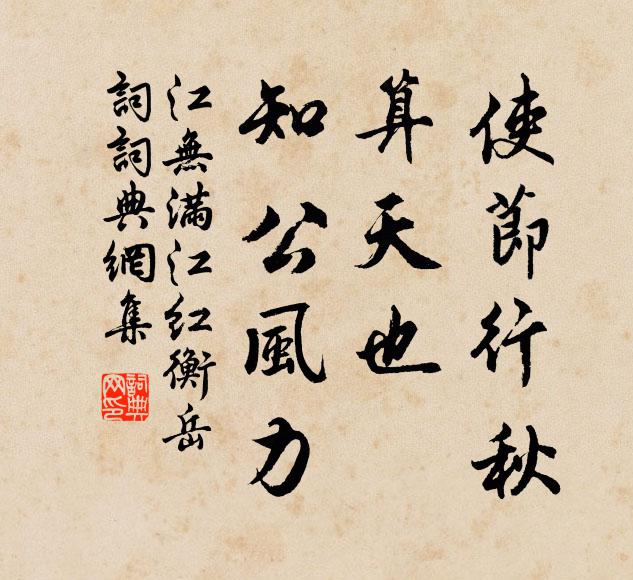 使節行秋
算天也
知公風力
江無滿江紅衡岳
詞詞典網集
詞典
网印